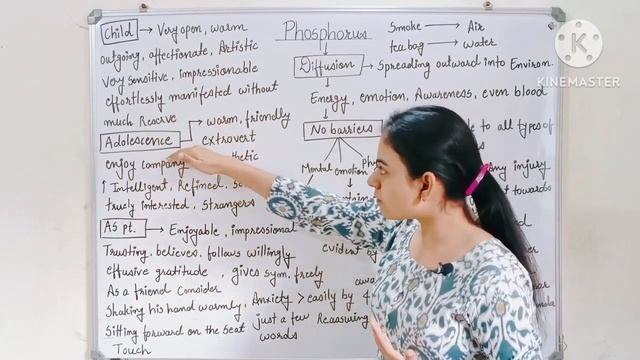 Phosphorus
Child → Very open, warm
outgoing, affectionate, Artistic
Very sensitive, impressionable
effortlessly manifested without
much Reserve
Adolescence → warm, friendly
extrovert
enjoy company
↑ Intelligent, Refined,
truly interested, strangers
As pt. → Enjoyable, impressional
Trusting, believes, follows willingly
effusive gratitude, gives sym. freely
As a friend Consider
Shaking his hand warmly, Anxiety > easily by
Sitting forward on the seat just a few Reassuring
Touch words
Smoke → Air
tea bag → water
Diffusion → Spreading outward into Environ.
Energy, emotion, Awareness, even blood
No barriers to all types of
Mental emotion
any injury
towards
evident
KINEMASTER